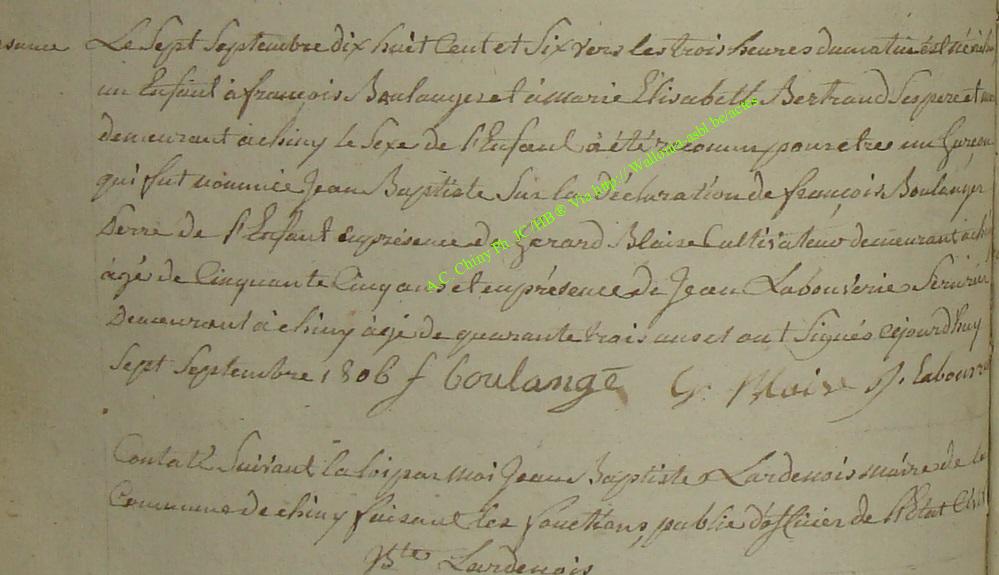 Le Sept Septembre dix huit Cent et Six vers les trois heures du matin est né
un Enfant à françois Boulanger et à marie Elisabeth Bertrand Ses pere et
demeurant à chiny le Sexe de l'Enfant à été reconnu pour etre un Garcon
qui fut nommée Jean Baptiste Sur la Déclaration de françois Boulanger
Perre de l'Enfant en présence de Gerard Blaise Cultivateur demeurant a
àgé de Cinquante Cinq ans et en présence de Jean Labouverie
Demeurant à chiny àgé de quarante trois ans et ont Signés cejourd'huy
Sept Septembre 1806 f boulangé G. J. Labouve
Contaté Suivant la loi par moi Jean Baptiste Lardenois maire de la
Commune de chiny faisant les fonctions public d'officier de l'Etat Civil
Bte Lardenois
A.C. Chiny Ph JC/HB® Via http://Wallonia.asbl.be/actes